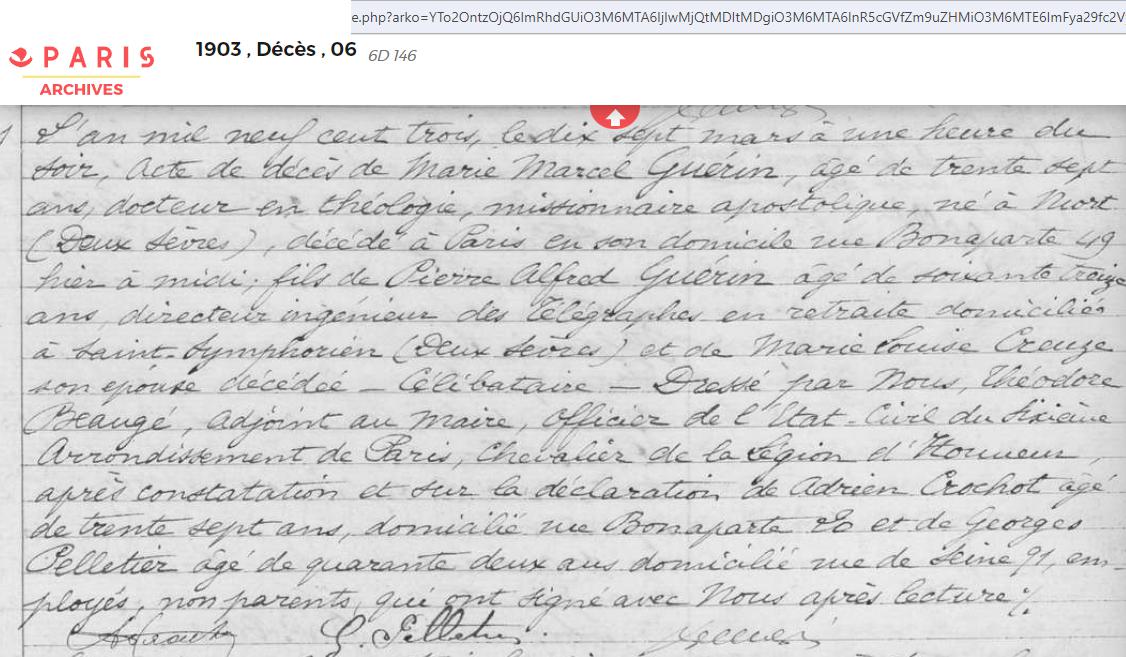 e.php?arko=YTo2OntzOjQ6ImRhdGUiO3M6MTA6IjIwMjQtMDItMDgiO3M6MTA6InR5cGVfZm9uZHMiO3M6MTE6ImFya29fc2V
PARIS
ARCHIVES
1903 , Décès , 06 6D 146
L'an mil neuf cent trois, le dix sept mars à une heure du
soir, Acte de décès de Marie Marcel Guérin, âgé de trente sept
ans, docteur en théologie, missionnaire apostolique, né à Niort
(Deux Sèvres), décédé à Paris en son domicile rue Bonaparte 49
hier à midi; fils de Pierre Alfred Guérin âgé de soixante treize
ans, directeur ingénieur des Télégraphes en retraite domicilié
à Saint-Symphorien (Deux Sèvres) et de Marie Louise Creuzé
son épouse décédée — Célibataire — Dressé par Nous, Théodore
Beaugé, adjoint au maire, officier de l'Etat-Civil du Sixième
Arrondissement de Paris, Chevalier de la Légion d'Honneur,
après constatation et sur la déclaration de Adrien Crochot âgé
de trente sept ans, domicilié rue Bonaparte et de Georges
Pelletier âgé de quarante deux ans domicilié rue de Seine 91, em-
ployés, non parents, qui ont signé avec Nous après lecture ./.
G. Pelletier